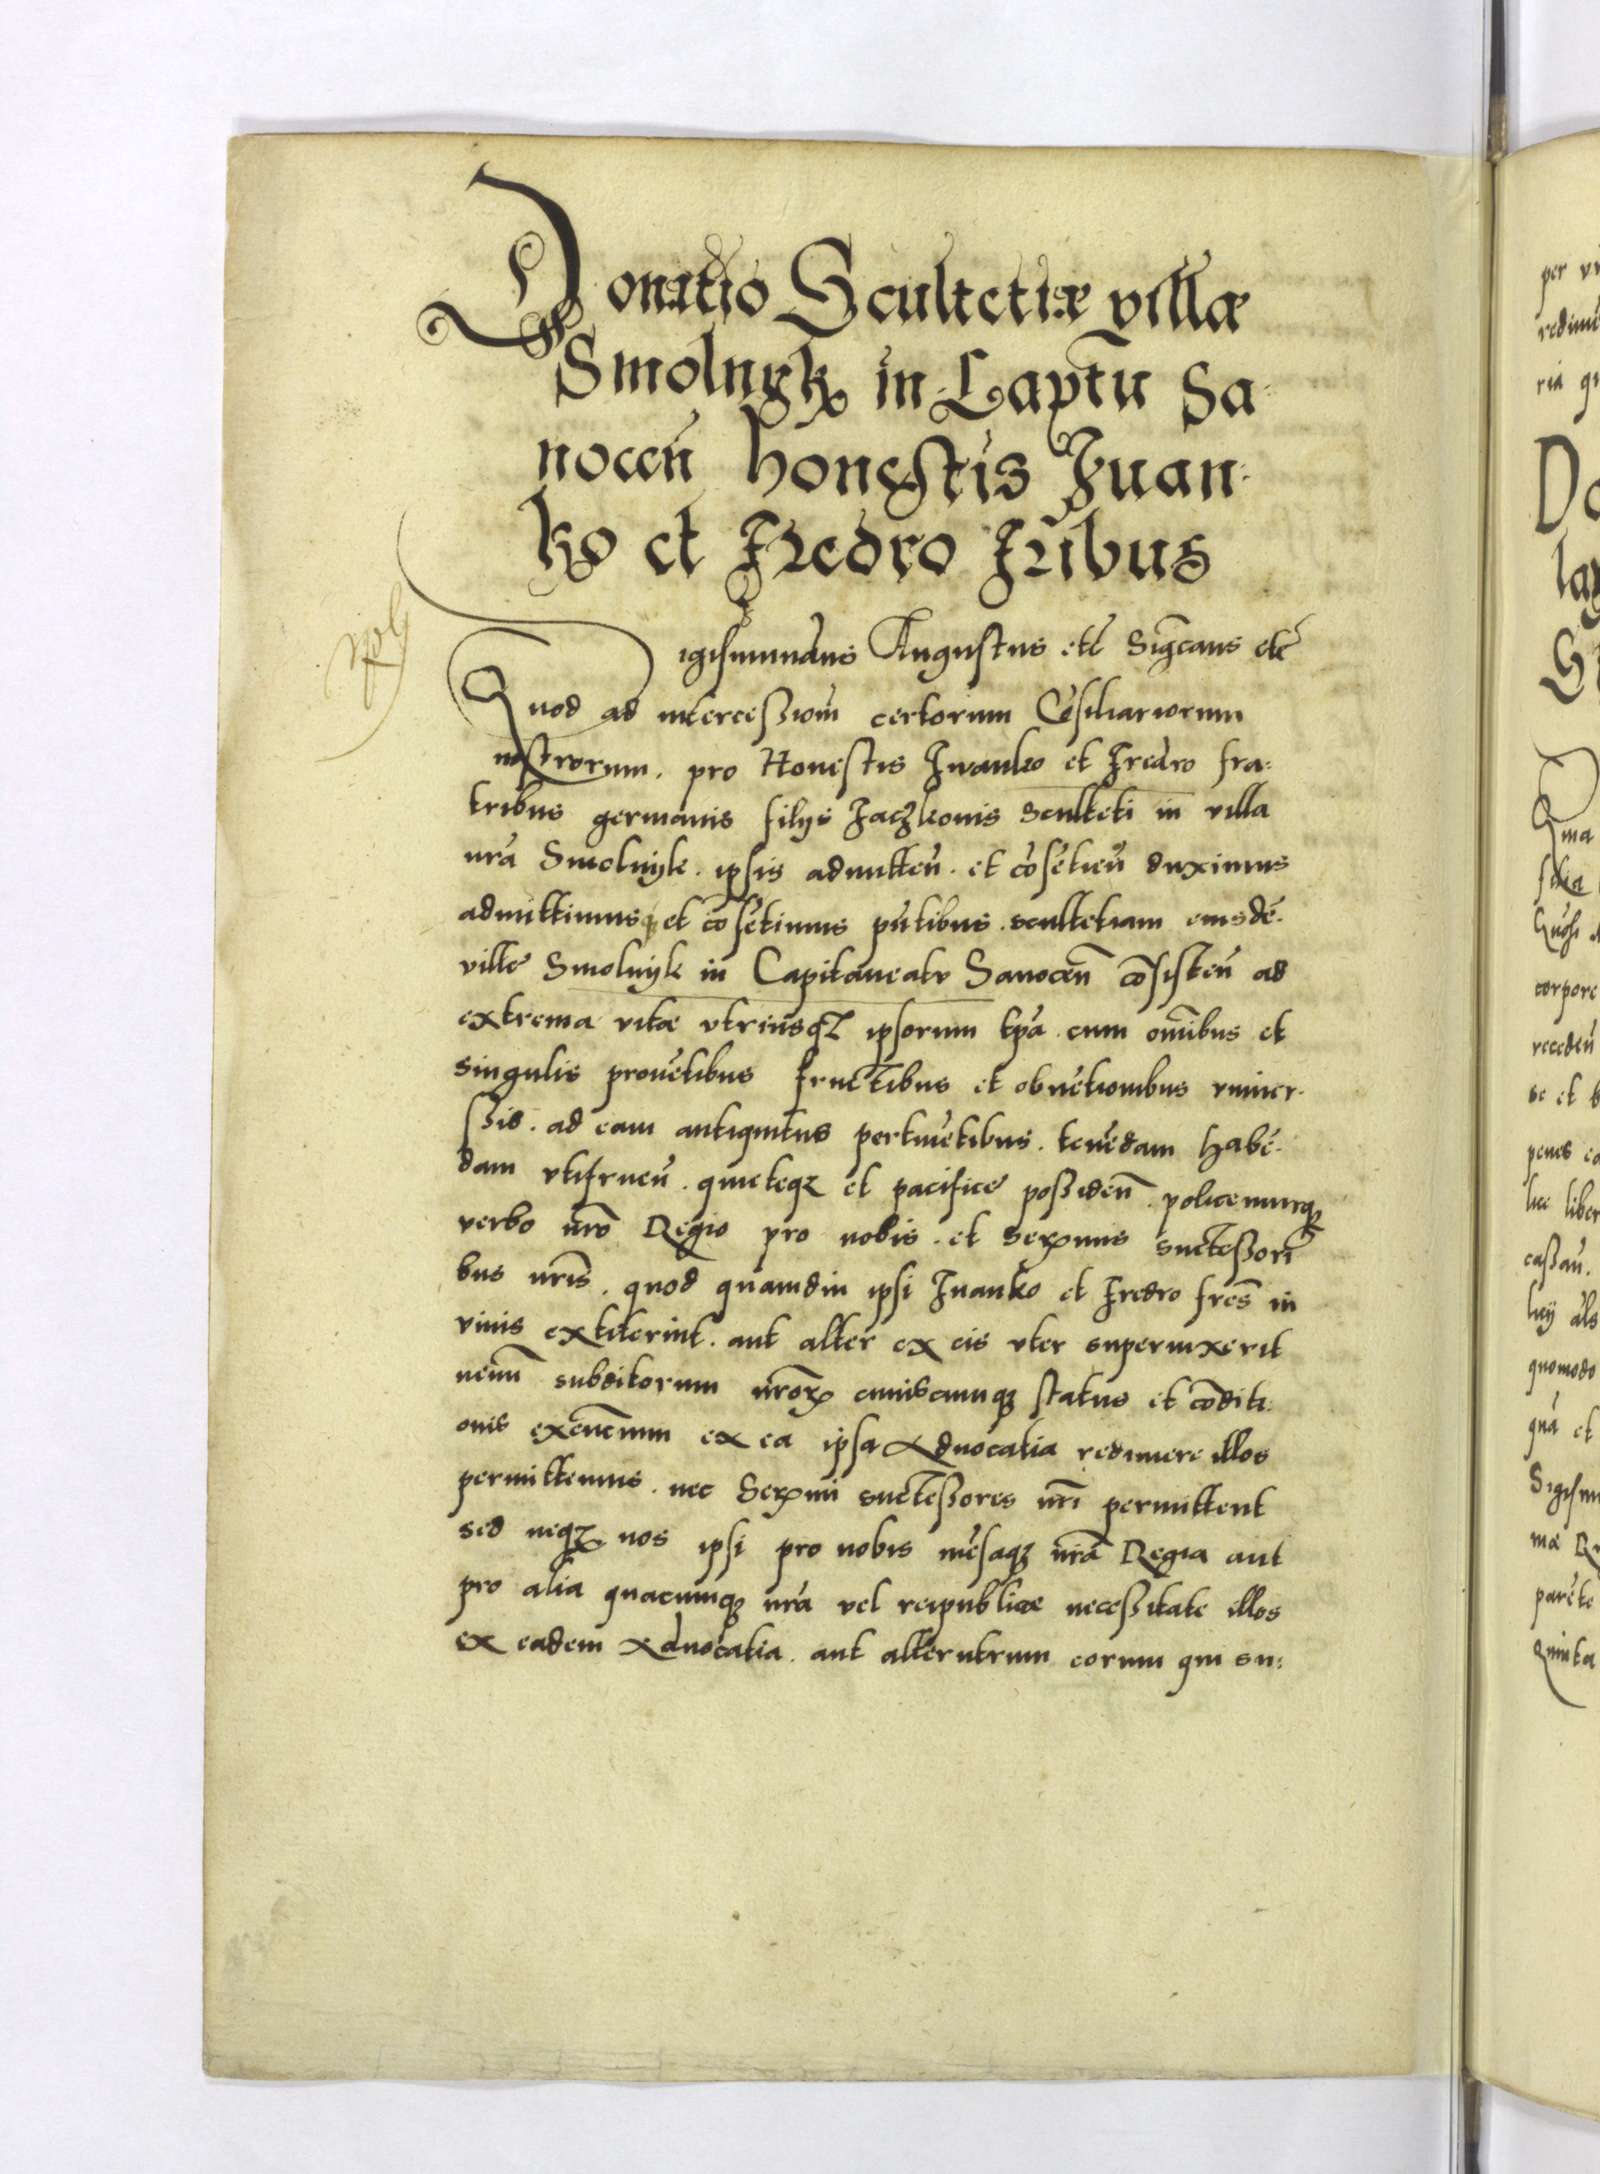 Donatio Scultetiæ villæ
Smolnyk in Captu Sa:
nocen honestis Iuan:
ko et Fredro Fribus
Sigismundus Augustus etc Sigcans etc
Quod ad intercessiom certorum Cosiliariorum
nostrorum. pro Honestis Iwanko et Fredro fra:
tribus germanis filijs Iaczkonis sculteti in villa
nra Smolnijk. ipsis admitten. et cosetien duximus
admittimusq et cosetimus pntibus. scultetiam eiusde.
ville Smolnijk in Capitaneatu Sanocen cosisten ad
extrema vitæ vtriusqz ipsorum tpa. cum omibus et
singulis prouetibus fructibus et obuetionibus vniuer.
ssis. ad eam antiquitus pertinetibus. tenedam habe.
dam vtifruen. quieteqz et pacifice possiden. policemurqz
verbo nro Regio pro nobis. et Serenmis successori
bus nris. quod quamdiu ipsi Iuanko et Fredro fres in
viuis extiterint. aut alter ex eis vter superuixerit
nemi subditorum nrorx cuiuscumqz status et coditi.
onis exentium ex ea ipsa Aduocatia redimere illos
permittemus. nec Serenmi successores nri permittent
sed neqz nos ipsi pro nobis mesaqz nra Regia aut
pro alia quacumqz nra vel reipublicæ necessitate illos
ex eadem Aduocatia. aut alterutrum eorum qui su: